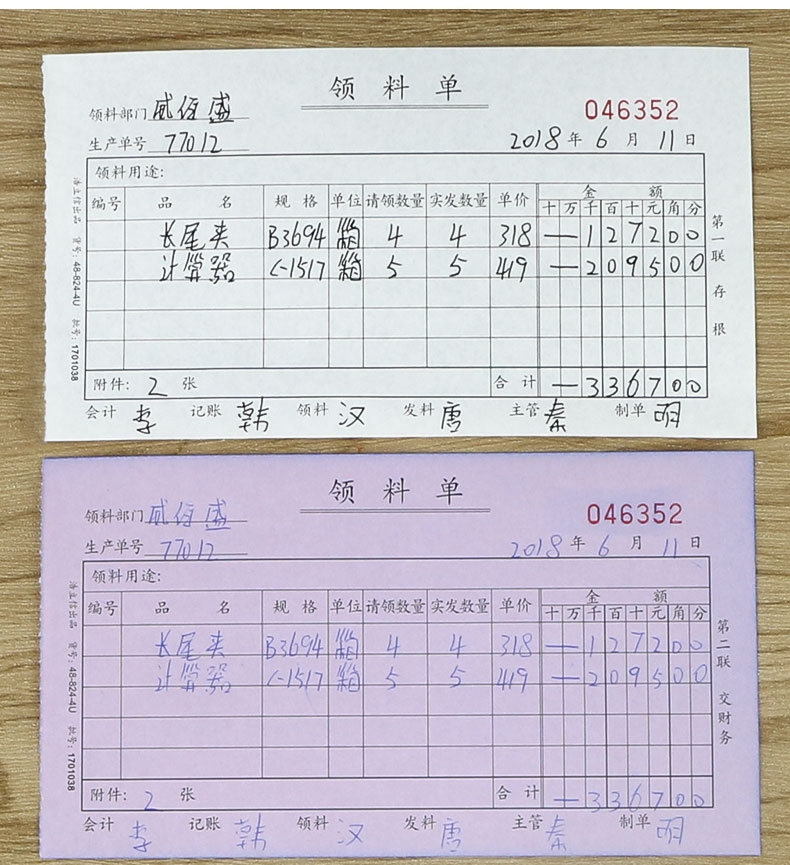 领料单
046352
领料部门 威佰盛
生产单号 77012
2018年6月11日
领料用途:
编号 品名 规格 单位 请领数量 实发数量 单价 金额
十万千百十元角分
长尾夹 B3694 箱 4 4 318 —127200
计算器 C-1517 箱 5 5 419 —209500
附件: 2 张 合计 —336700
会计 李 记账 韩 领料 汉 发料 唐 主管 秦 制单 明
第一联 存根
浩立信出品 货号: 48-824-4U 批号: 1701038
领料单
046352
领料部门 威佰盛
生产单号 77012
2018年6月11日
领料用途:
编号 品名 规格 单位 请领数量 实发数量 单价 金额
十万千百十元角分
长尾夹 B3694 箱 4 4 318 —127200
计算器 C-1517 箱 5 5 419 —209500
附件: 2 张 合计 —336700
会计 李 记账 韩 领料 汉 发料 唐 主管 秦 制单 明
第二联 交财务
浩立信出品 货号: 48-824-4U 批号: 1701038